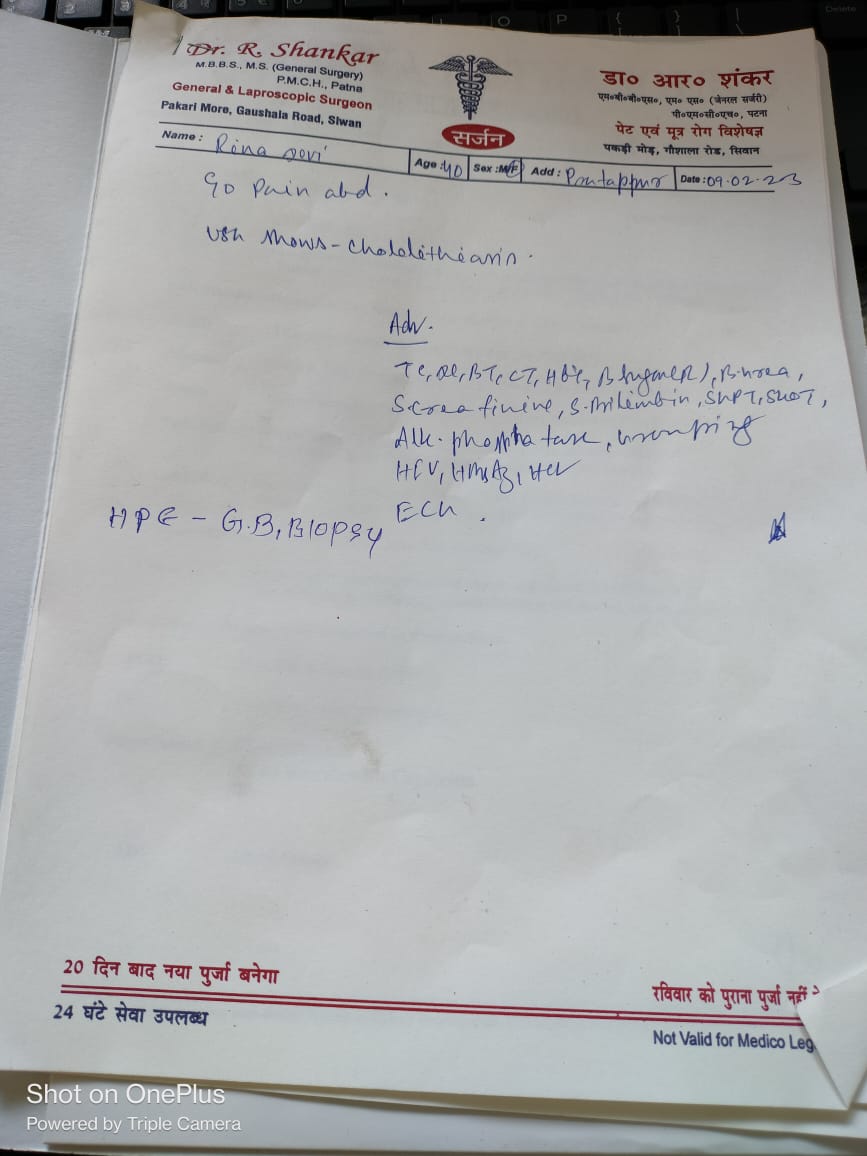 Dr. R. Shankar
M.B.B.S., M.S. (General Surgery)
P.M.C.H., Patna
General & Laproscopic Surgeon
Pakari More, Gaushala Road, Siwan
सर्जन
डा० आर० शंकर
एम०बी०बी०एस०, एम० एस० (जेनरल सर्जरी)
पी०एम०सी०एच०, पटना
पेट एवं मूत्र रोग विशेषज्ञ
पकड़ी मोड़, गौशाला रोड, सिवान
Name: Rina Devi Age: 40 Sex: M/F Add: Pratappur Date: 09-02-23
C/o Pain abd.
USG shows - Cholelithiasis.
Adv.
TC, DC, BT, CT, Hb%, B. Sugar (R), B. urea,
S. Creatinine, S. Bilirubin, SGPT, SGOT,
Alk. phosphatase,
HIV, HBsAg, HCV
ECG.
HPE - G.B, BIOPSY
20 दिन बाद नया पुर्जा बनेगा
24 घंटे सेवा उपलब्ध
रविवार को पुराना पुर्जा नहीं
Not Valid for Medico Leg
Shot on OnePlus
Powered by Triple Camera